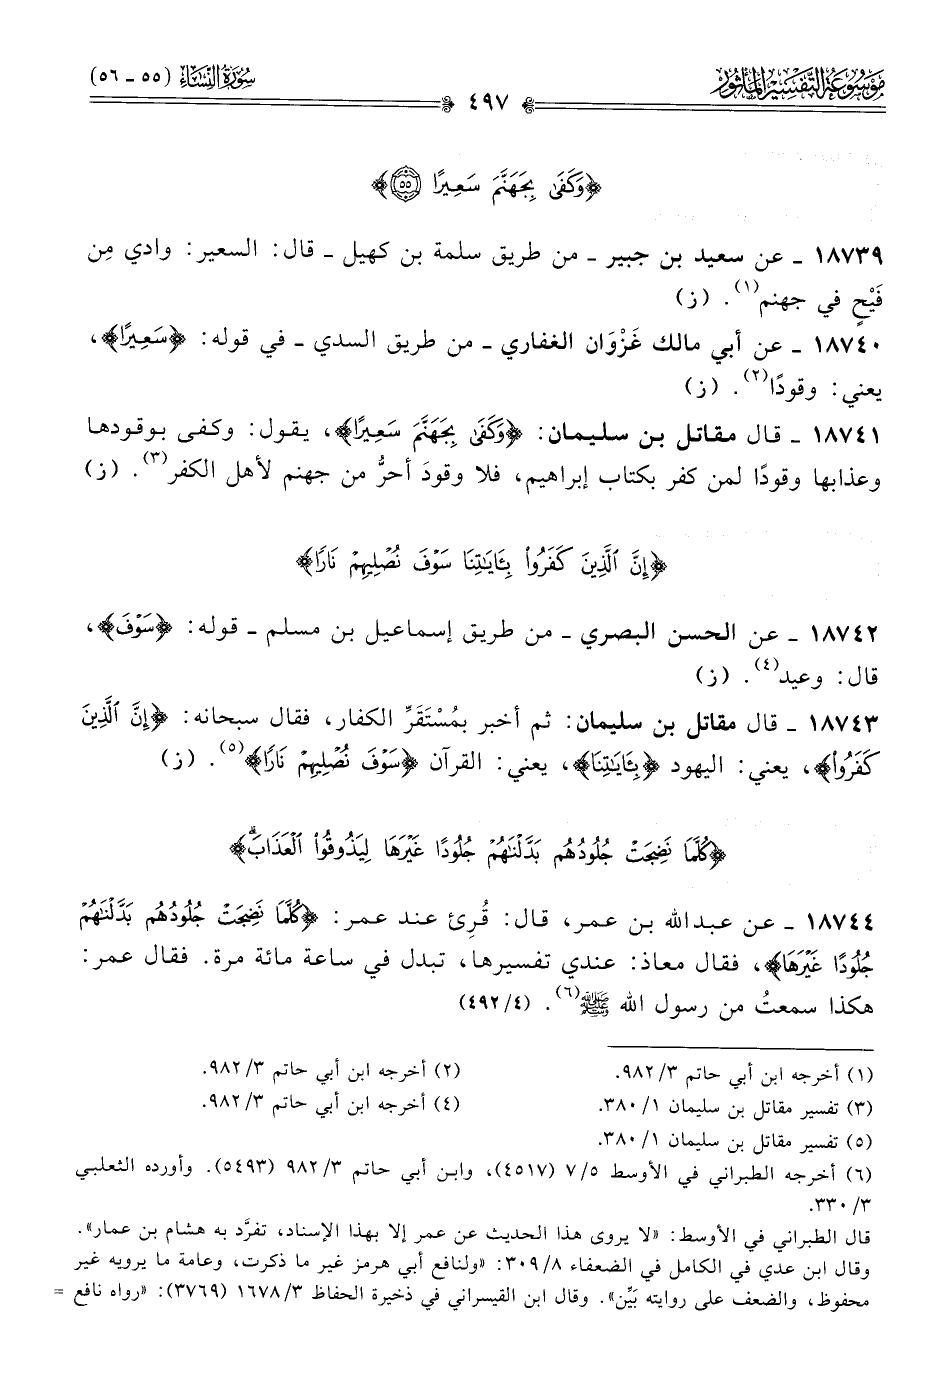 مَوْسُوعَة التَّفْسِير المَأْثُور
٤٩٧
سُورَةُ النِّسَاءِ (٥٥ - ٥٦)
﴿وَكَفَىٰ بِجَهَنَّمَ سَعِيرًا ۝٥٥﴾
١٨٧٣٩ - عن سعيد بن جبير - من طريق سلمة بن كهيل - قال: السعير: وادي مِن
فَيْحٍ في جهنم(١). (ز)
١٨٧٤٠ - عن أبي مالك غَزْوَان الغفاري - من طريق السدي - في قوله: ﴿سَعِيرًا﴾،
يعني: وقودًا(٢). (ز)
١٨٧٤١ - قال مقاتل بن سليمان: ﴿وَكَفَىٰ بِجَهَنَّمَ سَعِيرًا﴾، يقول: وكفى بوقودها
وعذابها وقودًا لمن كفر بكتاب إبراهيم، فلا وقودَ أحرُّ من جهنم لأهل الكفر(٣). (ز)
﴿إِنَّ ٱلَّذِينَ كَفَرُوا۟ بِـَٔايَـٰتِنَا سَوْفَ نُصْلِيهِمْ نَارًا﴾
١٨٧٤٢ - عن الحسن البصري - من طريق إسماعيل بن مسلم - قوله: ﴿سَوْفَ﴾،
قال: وعيد(٤). (ز)
١٨٧٤٣ - قال مقاتل بن سليمان: ثم أخبر بمُسْتَقَرِّ الكفار، فقال سبحانه: ﴿إِنَّ ٱلَّذِينَ
كَفَرُوا۟﴾، يعني: اليهود ﴿بِـَٔايَـٰتِنَا﴾، يعني: القرآن ﴿سَوْفَ نُصْلِيهِمْ نَارًا﴾(٥). (ز)
﴿كُلَّمَا نَضِجَتْ جُلُودُهُم بَدَّلْنَـٰهُمْ جُلُودًا غَيْرَهَا لِيَذُوقُوا۟ ٱلْعَذَابَ ۗ﴾
١٨٧٤٤ - عن عبدالله بن عمر، قال: قُرِئ عند عمر: ﴿كُلَّمَا نَضِجَتْ جُلُودُهُم بَدَّلْنَـٰهُمْ
جُلُودًا غَيْرَهَا﴾، فقال معاذ: عندي تفسيرها، تبدل في ساعة مائة مرة. فقال عمر:
هكذا سمعتُ من رسول الله ﷺ(٦). (٤/٤٩٢)
(١) أخرجه ابن أبي حاتم ٣/ ٩٨٢.
(٢) أخرجه ابن أبي حاتم ٣/ ٩٨٢.
(٣) تفسير مقاتل بن سليمان ١/ ٣٨٠.
(٤) أخرجه ابن أبي حاتم ٣/ ٩٨٢.
(٥) تفسير مقاتل بن سليمان ١/ ٣٨٠.
(٦) أخرجه الطبراني في الأوسط ٥/ ٧ (٤٥١٧)، وابن أبي حاتم ٣/ ٩٨٢ (٥٤٩٣). وأورده الثعلبي
٣/ ٣٣٠.
قال الطبراني في الأوسط: «لا يروى هذا الحديث عن عمر إلا بهذا الإسناد، تفرَّد به هشام بن عمار».
وقال ابن عدي في الكامل في الضعفاء ٨/ ٣٠٩: «ولنافع أبي هرمز غير ما ذكرت، وعامة ما يرويه غير
محفوظ، والضعف على روايته بَيِّن». وقال ابن القيسراني في ذخيرة الحفاظ ٣/ ١٦٧٨ (٣٧٦٩): «رواه نافع =